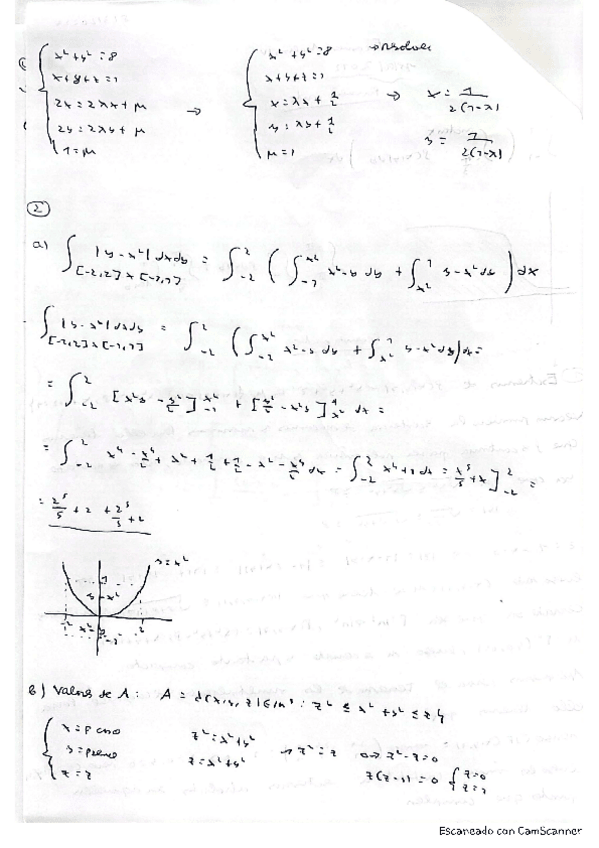 x² + y² = 8
x+y+z=1
2x = 2λx + μ
2y = 2λy + μ
1 = μ
→
x² + y² = 8 → resolver
x+y+z=1
x = λx + 1/2
y = λy + 1/2
μ = 1
→ x = 1/2(1-λ)
y = 1/2(1-λ)
②
a) ∫_{[-2,2]×[-1,1]} |y-x²| dxdy = ∫_{-2}^{2} ( ∫_{-1}^{x²} x²-y dy + ∫_{x²}^{1} y-x² dy ) dx
∫_{[-2,2]×[-1,1]} |y-x²| dxdy = ∫_{-2}^{2} ( ∫_{-2}^{x²} x²-y dy + ∫_{x²}^{1} y-x² dy ) dx =
= ∫_{-2}^{2} [x²y - y²/2]_{-1}^{x²} + [y²/2 - x²y]_{x²}^{1} dx =
= ∫_{-2}^{2} x⁴ - x⁴/2 + x² + 1/2 + 1/2 - x² - x⁴/2 dx = ∫_{-2}^{2} x⁴+1 dx = x⁵/5 + x ]_{-2}^{2} =
= 2⁵/5 + 2 + 2⁵/5 + 2
y = x²
1
y-x²
-2
2
-1
b) Valores de A: A = {(x,y,z) ∈ ℝ³ : z² ≤ x² + y² ≤ z}
x = ρ cosθ
z = z
z² = x² + y²
z = x² + y²
→ z² = z ⇔ z² - z = 0
z(z-1) = 0 { z=0
z=1
Escaneado con CamScanner